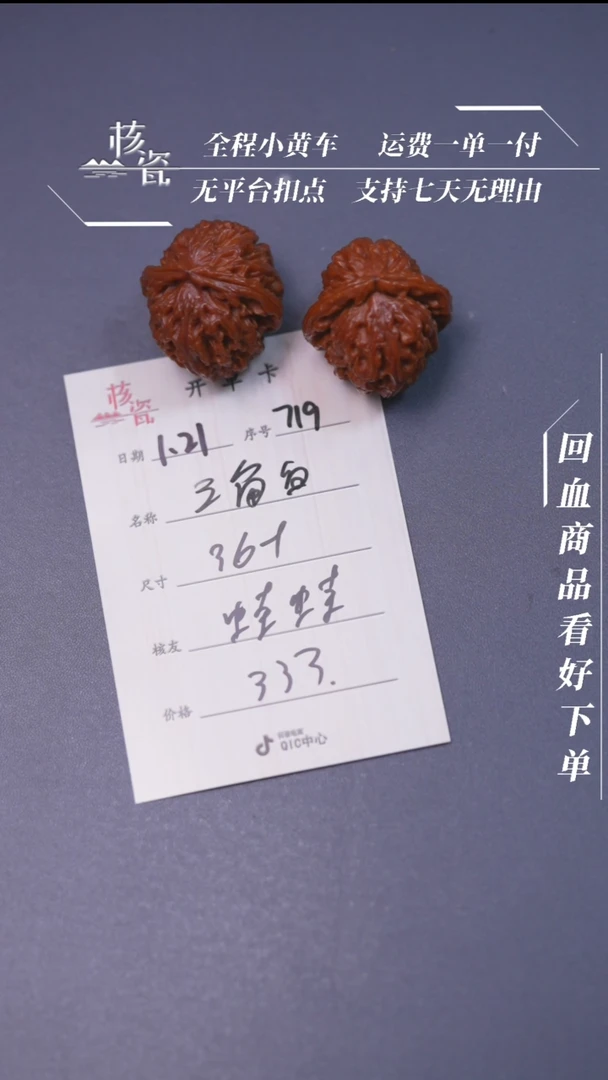 核瓷
全程小黄车 运费一单一付
无平台扣点 支持七天无理由
核瓷
开单卡
日期 1.21 序号 719
名称 三角白
尺寸 36+
核友 蛙蛙
价格 333.
QIC中心
回血商品看好下单